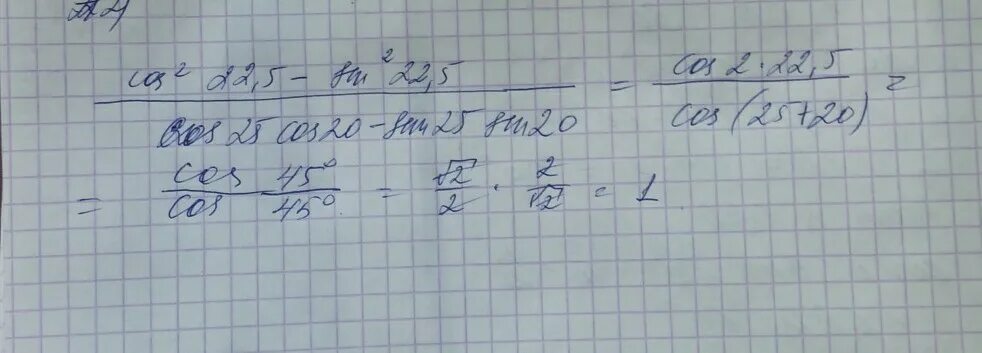 cos² 22,5 - sin² 22,5 / cos 25 cos 20 - sin 25 sin 20 = cos 2 · 22,5 / cos (25+20) =
= cos 45° / cos 45° = √2 / 2 · 2 / √2 = 1